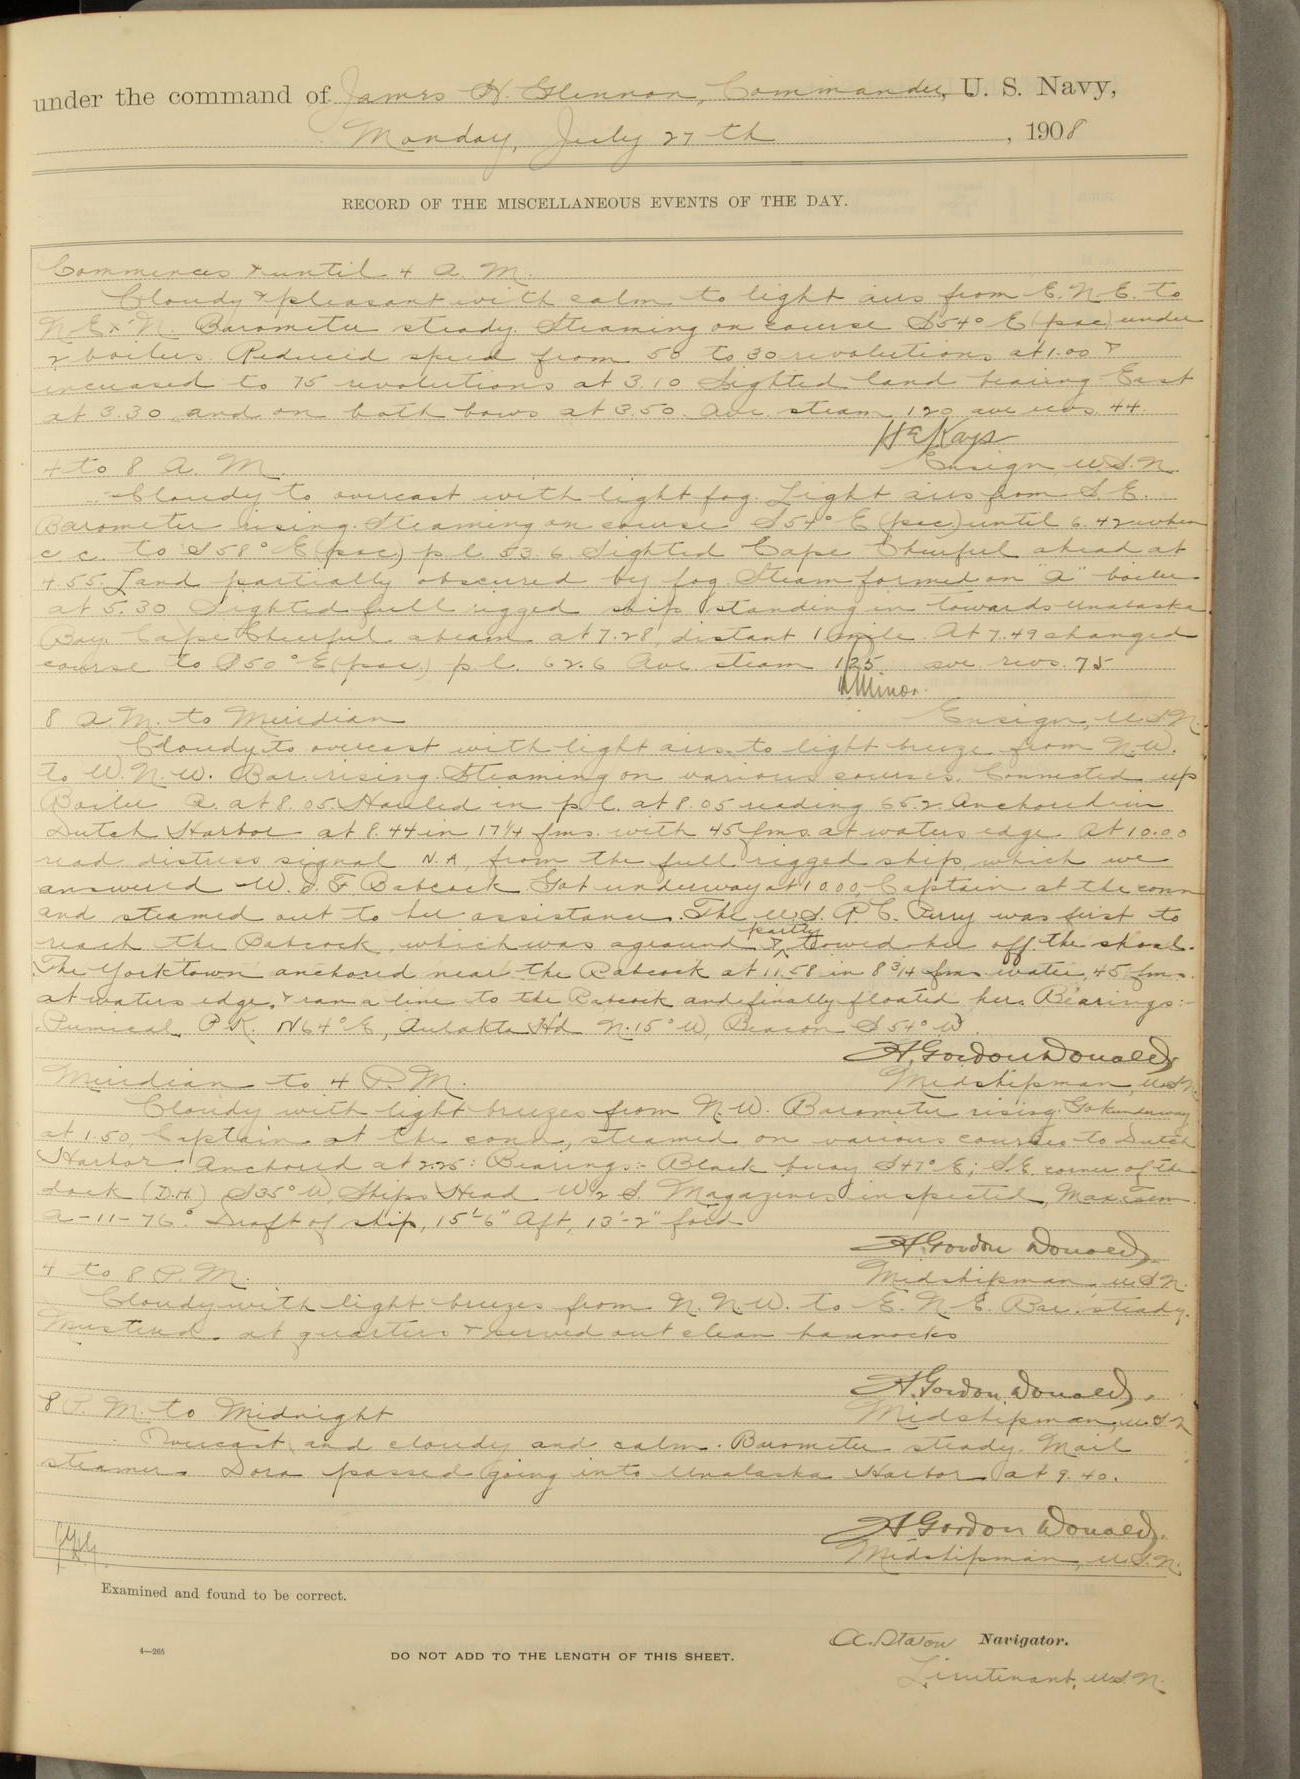 under the command of James H. Glennon, Commander, U. S. Navy,
Monday, July 27th, 1908
RECORD OF THE MISCELLANEOUS EVENTS OF THE DAY.
Commences & until 4 A. M.
Cloudy & pleasant with calm to light airs from E. N. E. to
N E x N. Barometer steady. Steaming on course S 54° E (psc) under
2 boilers. Reduced speed from 50 to 30 revolutions at 1.00 &
increased to 75 revolutions at 3.10 Sighted land bearing East
at 3.30 and on both bows at 3.50. Ave steam 120 ave revs. 44.
H E Kays
4 to 8 A. M. Ensign, U.S.N.
Cloudy to overcast with light fog. Light airs from S. E.
Barometer rising. Steaming on course S 54° E (psc) until 6.42 when
c. c. to S 58° E (psc.) p. l. 53.6 Sighted Cape Cheerful ahead at
4.55. Land partially obscured by fog. Steam formed on "A" boiler
at 5.30 Sighted full rigged ship standing in towards Unalaska
Bay. Cape Cheerful abeam at 7.28, distant 1 mile. At 7.49 changed
course to S 50° E (psc.) p. l. 62.6 Ave steam 125 ave revs. 75
Minor.
8 A. M. to Meridian Ensign, U.S.N.
Cloudy to overcast with light airs to light breeze from N. W.
to W. N. W. Bar. rising. Steaming on various courses. Connected up
Boiler A. at 8.05 Hauled in p. l. at 8.05 reading 65.2 Anchored in
Dutch Harbor at 8.44 in 17 1/4 fms. with 45 fms at waters edge. At 10.00
read distress signal N.A. from the full rigged ship, which we
answered W. F. Babcock. Got underway at 10.00, Captain at the conn
and steamed out to her assistance. The U.S. R. C. Perry was first to
reach the Babcock, which was aground & partly towed her off the shoal.
The Yorktown anchored near the Babcock at 11.58 in 8 3/4 fms water, 45 fms.
at waters edge, & ran a line to the Babcock and finally floated her. Bearings:-
Pumical P.K. N 64° E, Aulakta H'd N. 15° W, Beacon S 54° W.
H. Gordon Donald
Meridian to 4 P. M. Midshipman, U.S.N.
Cloudy with light breezes from N. W. Barometer rising. Got underway
at 1.50, Captain at the conn, steamed on various courses to Dutch
Harbor. Anchored at 2.25: Bearings:- Black buoy S 47° E; S.E. corner of the
dock (D.H.) S 35° W Ships Head W 2 S. Magazines inspected, Max. Tem.
A-11-76°. Draft of ship, 15'-6" Aft, 13'-2" for'd
H. Gordon Donald
4 to 8 P. M. Midshipman, U.S.N.
Cloudy with light breezes from N. N. W. to E. N. E. Bar. steady.
Mustered at quarters & served out clean hammocks
H. Gordon Donald.
8 P. M. to Midnight Midshipman, U.S.N.
Overcast and cloudy and calm. Barometer steady. Mail
steamer Dora passed going into Unalaska Harbor at 9.40.
H Gordon Donald.
Midshipman, U.S.N.
Examined and found to be correct.
Navigator.
4—265
DO NOT ADD TO THE LENGTH OF THIS SHEET.
Lieutenant, U.S.N.